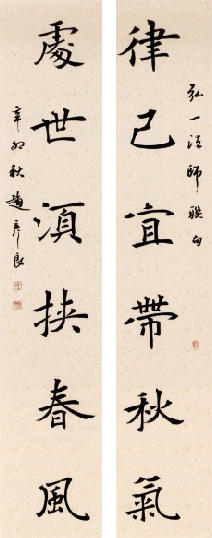 律己宜帶秋氣
弘一法師聯句
處世須挾春風
辛卯秋趙彥良